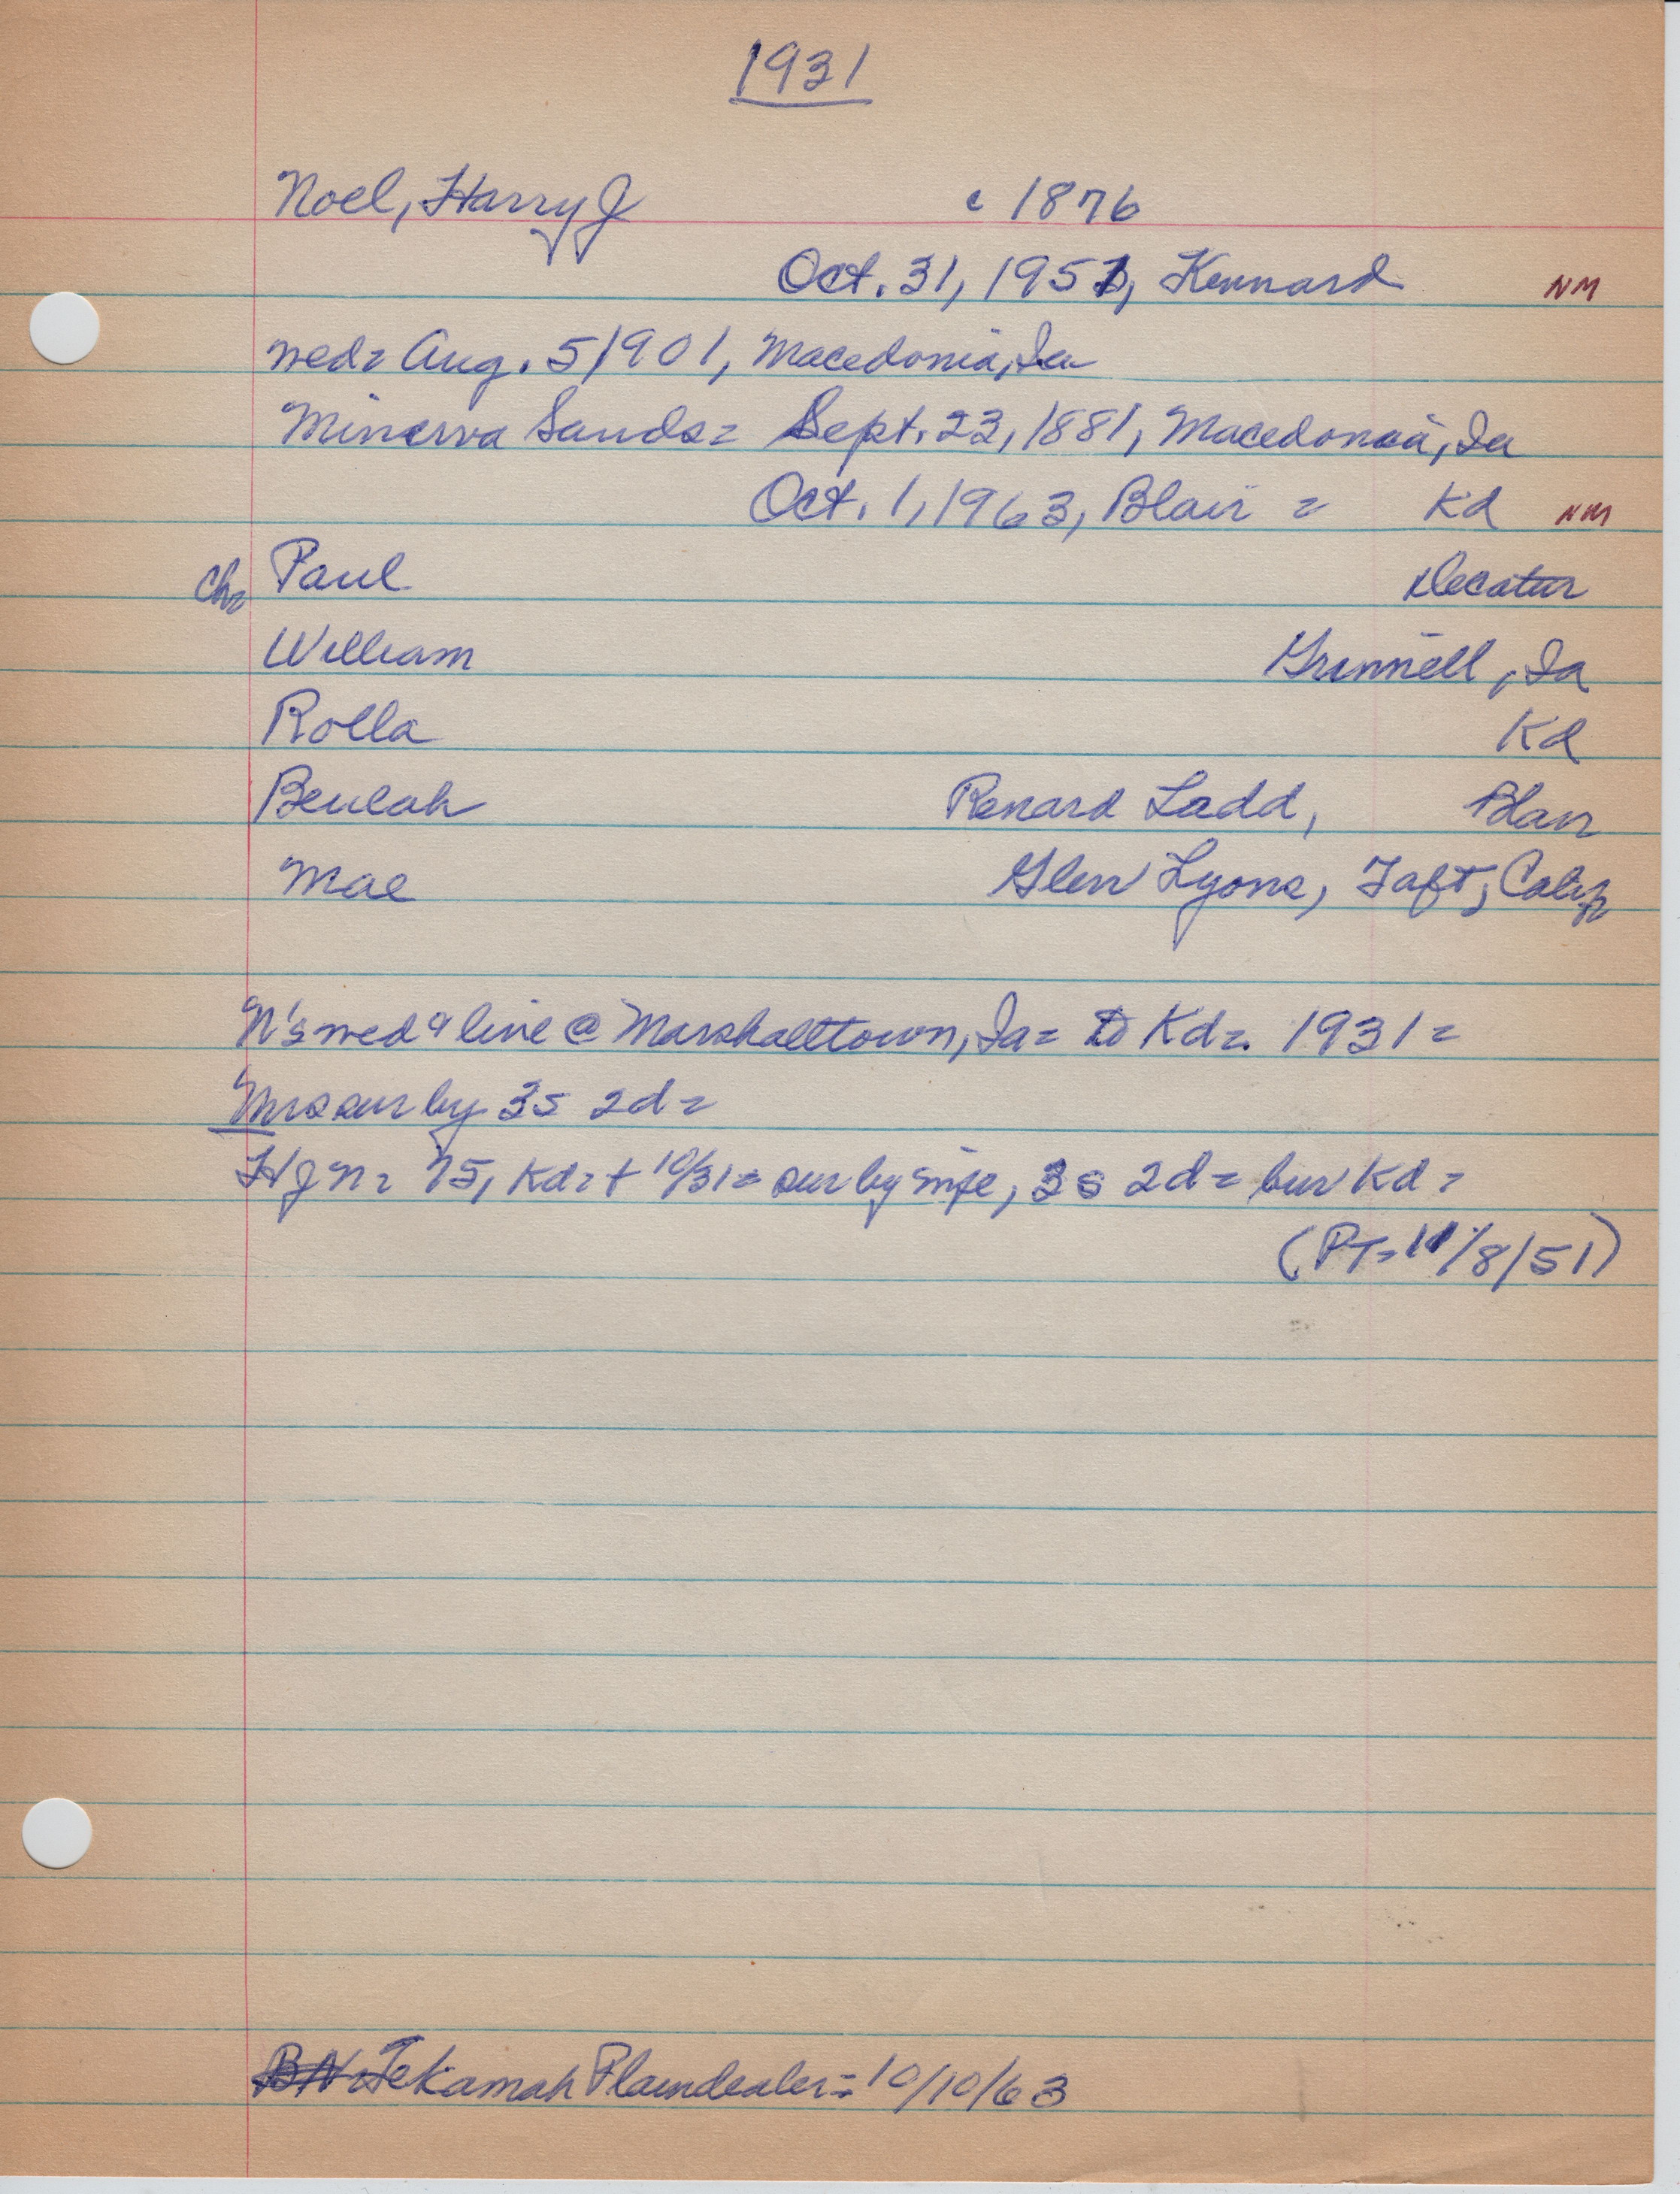 1931
Noel, Harry J c 1876
Oct. 31, 1951, Kennard NM
wed= Aug. 5 1901, Macedonia, Ia
Minerva Sands= Sept. 23, 1881, Macedonia, Ia
Oct. 1, 1963, Blair = Kd NM
Ch= Paul Decatur
William Grinnell, Ia
Rolla Kd
Beulah Renard Ladd, Blair
Mae Glen Lyons, Taft, Calif
N's wed & live @ Marshalltown, Ia= to Kd= 1931=
Mrs sur by 3s 2d=
HJN= 75, Kd= + 10/31= sur by wife, 3s 2d= bur Kd=
(PT= 11/8/51)
BN Tekamah Plaindealer= 10/10/63